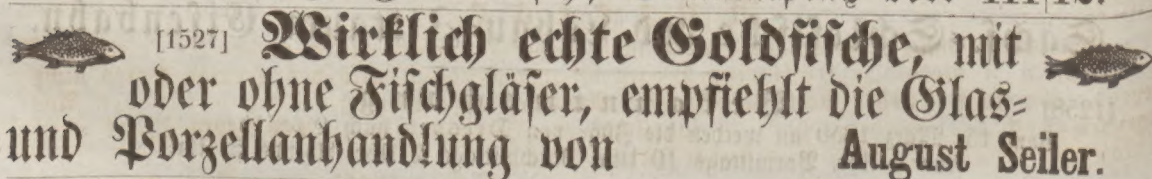 [1527] Wirklich echte Goldfische, mit
oder ohne Fischgläser, empfiehlt die Glas-
und Porzellanhandlung von August Seiler.